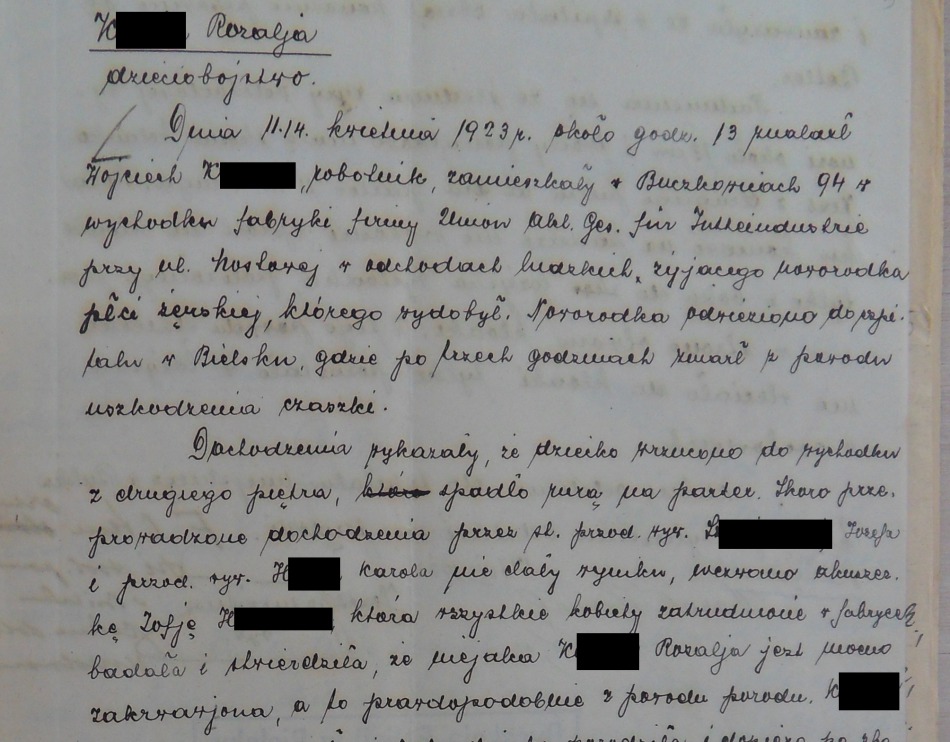 K Rozalja
dzieciobójstwo.
Dnia 11.14. kwietnia 1923 r. około godz. 13 znalazł
Wojciech K , robotnik, zamieszkały w Buczkowicach 94 w
wychodku fabryki firmy Union Akt. Ges. für Juteindustrie
przy ul. Mostowej w odchodach ludzkich, żyjącego noworodka
płci żeńskiej, którego wydobył. Noworodka odwieziono do szpi-
tala w Bielsku, gdzie po trzech godzinach zmarł z powodu
uszkodzenia czaszki.
Dochodzenia wykazały, że dziecko wrzucono do wychodku
z drugiego piętra, spadło rurą na parter. Skoro prze-
prowadzone dochodzenia przez st. przod. wyw. Józefa
i przod. wyw. H Karola nie dały wyniku, wezwano akuszer-
kę Zofję H , która wszystkie kobiety zatrudnione w fabryce
badała i stwierdziła, że niejaka K Rozalja jest mocno
zakrwawjona, a to prawdopodobnie z powodu porodu. K
i dopiero po